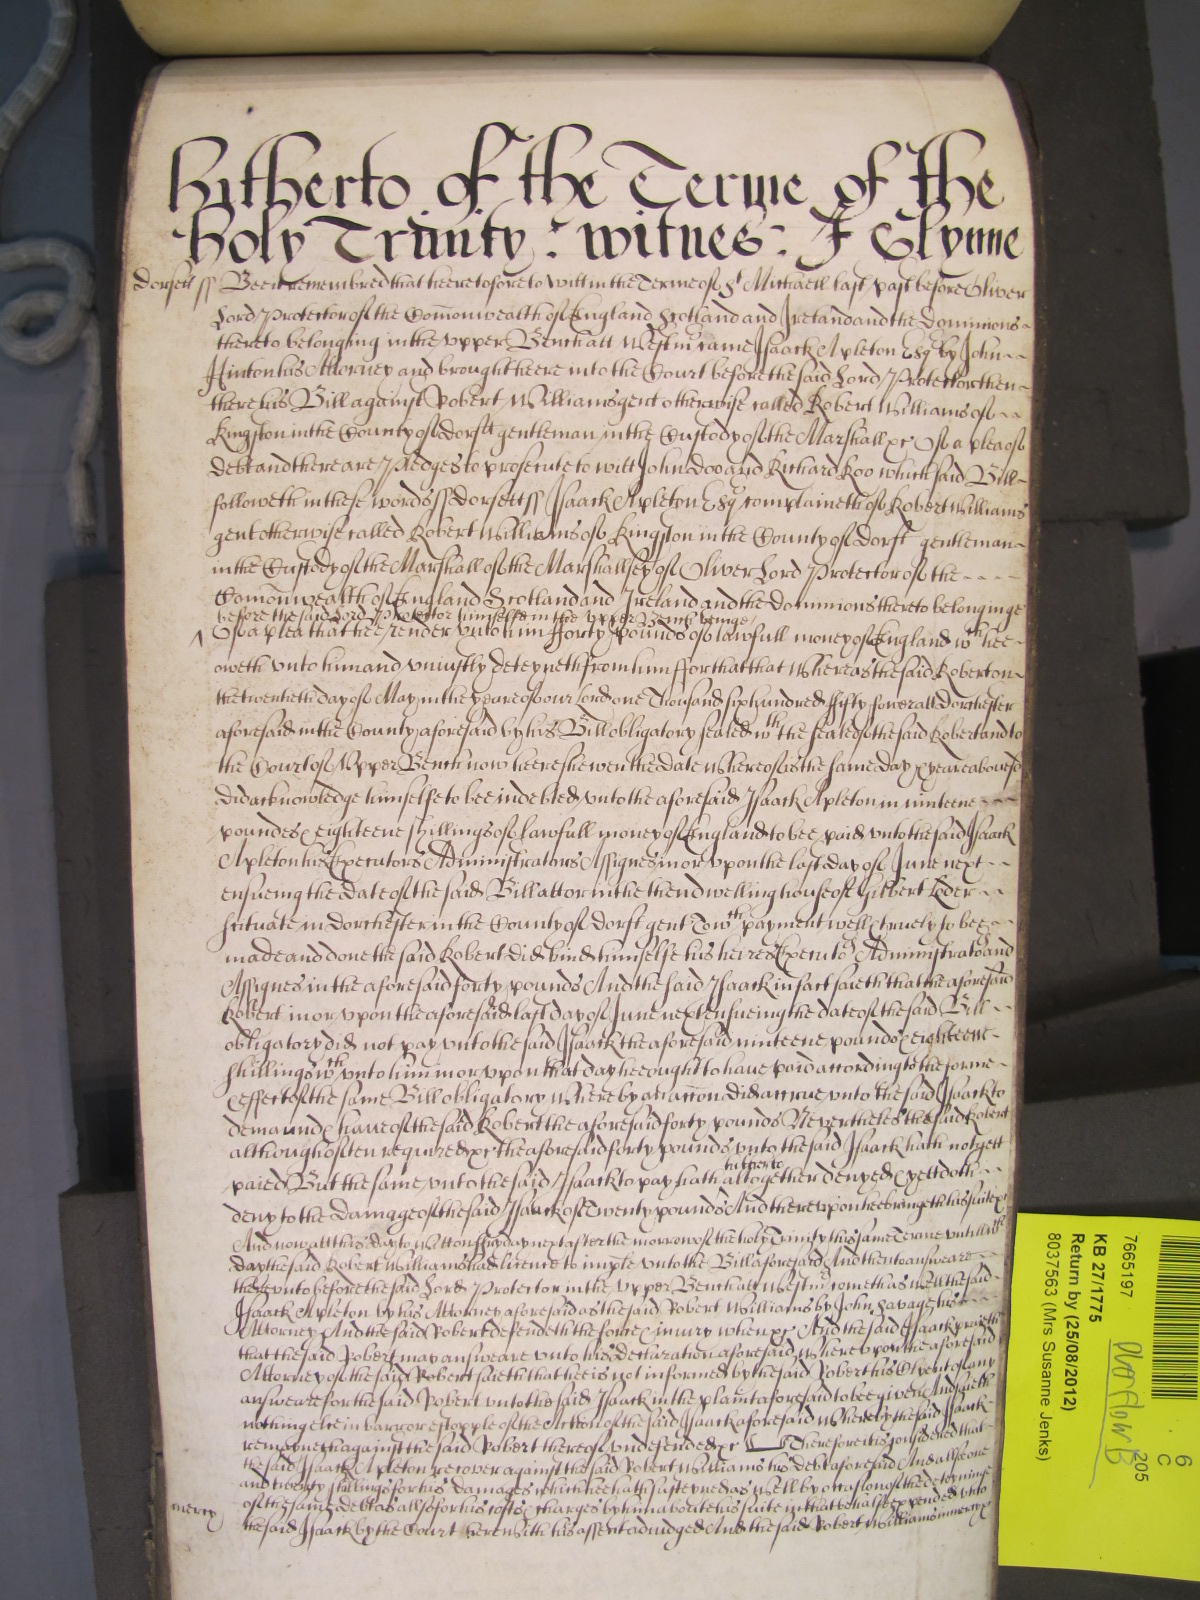 hitherto of the Terme of the
Holy Trinity : witnes : J Glynne
Dorsett ss Bee it remembred that heeretofore to witt in the Terme of St Michaell last past before Oliver
Lord Protector of the Comonwealth of England Scotland and Ireland and the Dominions
thereto belonging in the upper Bench att Westmr came Isaack Apleton Esqr by John
Hinton his Attorney and brought heere into the Court before the said Lord Protector then
there his Bill against Robert Williams gent otherwise called Robert Williams of
Kingston in the County of Dorsett gentleman in the Custody of the Marshall &c Of a plea of
debt and there are Pledges to prosecute to witt John Doo and Richard Roo which said Bill
followeth in these words ss dorsett ss Isaack Apleton Esqr complaineth of Robert Williams
gent otherwise called Robert Williams of Kingston in the County of Dorst gentleman
in the Custody of the Marshall of the Marshallsey of Oliver Lord Protector of the
Comonwealth of England Scotland and Ireland and the dominions thereto belonginge
before the said Lord Protector himselfe in the upper Bench beinge
Of a plea that hee render unto him fforty pounds of lawfull money of England wch hee
oweth unto him and uniustly deteyneth from him ffor that that Whereas the said Robert on
the twentieth day of May in the yeare of our Lord one Thousand six hundred ffifty fower att Dorchester
aforesaid in the County aforesaid by his Bill obligatory sealed wth the seale of the said Robert and to
the Court of Upper Bench now heere shewen the date Whereof is the same day & yeare abovesd
did acknowledge himselfe to bee indebted unto the aforesaid Isaack Apleton in nineteene
poundes & eighteene shillings of lawfull money of England to bee paid unto the said Isaack
Apleton his Executors Administrators Assignes in or upon the last day of June next
ensueing the date of the said Bill att or in the then dwelling house of Gilbert Loder
scituate in Dorchester in the County of Dorst gent To wch payment well & truely to bee
made and done the said Robert did bind himselfe his heires Executors Administrators and
Assignes in the aforesaid forty pounds And the said Isaack in fact saieth that the aforesaid
Robert in or upon the aforesaid last day of June next ensueing the date of the said Bill
obligatory did not pay unto the said Isaack the aforesaid nineteene pounds & eighteene
shillings wch unto him in or upon that day he ought to have paid according to the forme
& effect of the same Bill obligatory Whereby an action did accrue unto the said Isaack to
demaund & have of the said Robert the aforesaid forty pounds Nevertheles the said Robert
although often required &c the aforesaid forty pounds unto the said Isaack hath not yett
hitherto
paied But the same unto the said Isaack to pay hath altogether denyed & yett doth
deny to the Damage of the said Isaack of Twenty pounds And thereupon hee bringeth his suite &c
And now att this day to Witt on ffryday next after the morrow of the holy Trinity this same Terme untill wch
day the said Robert Williams had licence to imple unto the Bill aforesaid And then to answeare
thereunto before the said Lord Protector in the upper Bench att Westmr cometh as well the said
Isaack Apleton by his Attorney aforesaid as the said Robert Williams by John Savage his
Attorney And the said Robert defendeth the force & iniury when &c And the said Isaack prayeth
that the said Robert may answeare unto his declaration aforesaid Whereupon the aforesaid
Attorney of the said Robert saieth that hee is not informed by the said Robert his Clyent of any
answeare for the said Robert unto the said Isaack in the plaint aforesaid to bee given And saieth
nothing else in barr or estopple of the Action of the said Isaack aforesaid Whereby the said Isaack
remayneth against the said Robert thereof undefended &c Therefore it is considered that
the said Isaack Apleton recover against the said Robert Williams his debt aforesaid And allsoe one
and twenty shillings for his damages which hee hath susteyned as well by occasion of the deteyninge
of the same debt as allsoe for his costs & charges by him about his suite in that behalfe expended unto
mercy the said Isaack by the Court heere with his assent adiudged And the said Robert Williams in mercy &c
7665197
KB 27/1775
Return by (25/08/2012)
8037563 (Mrs Susanne Jenks)
6
C
205